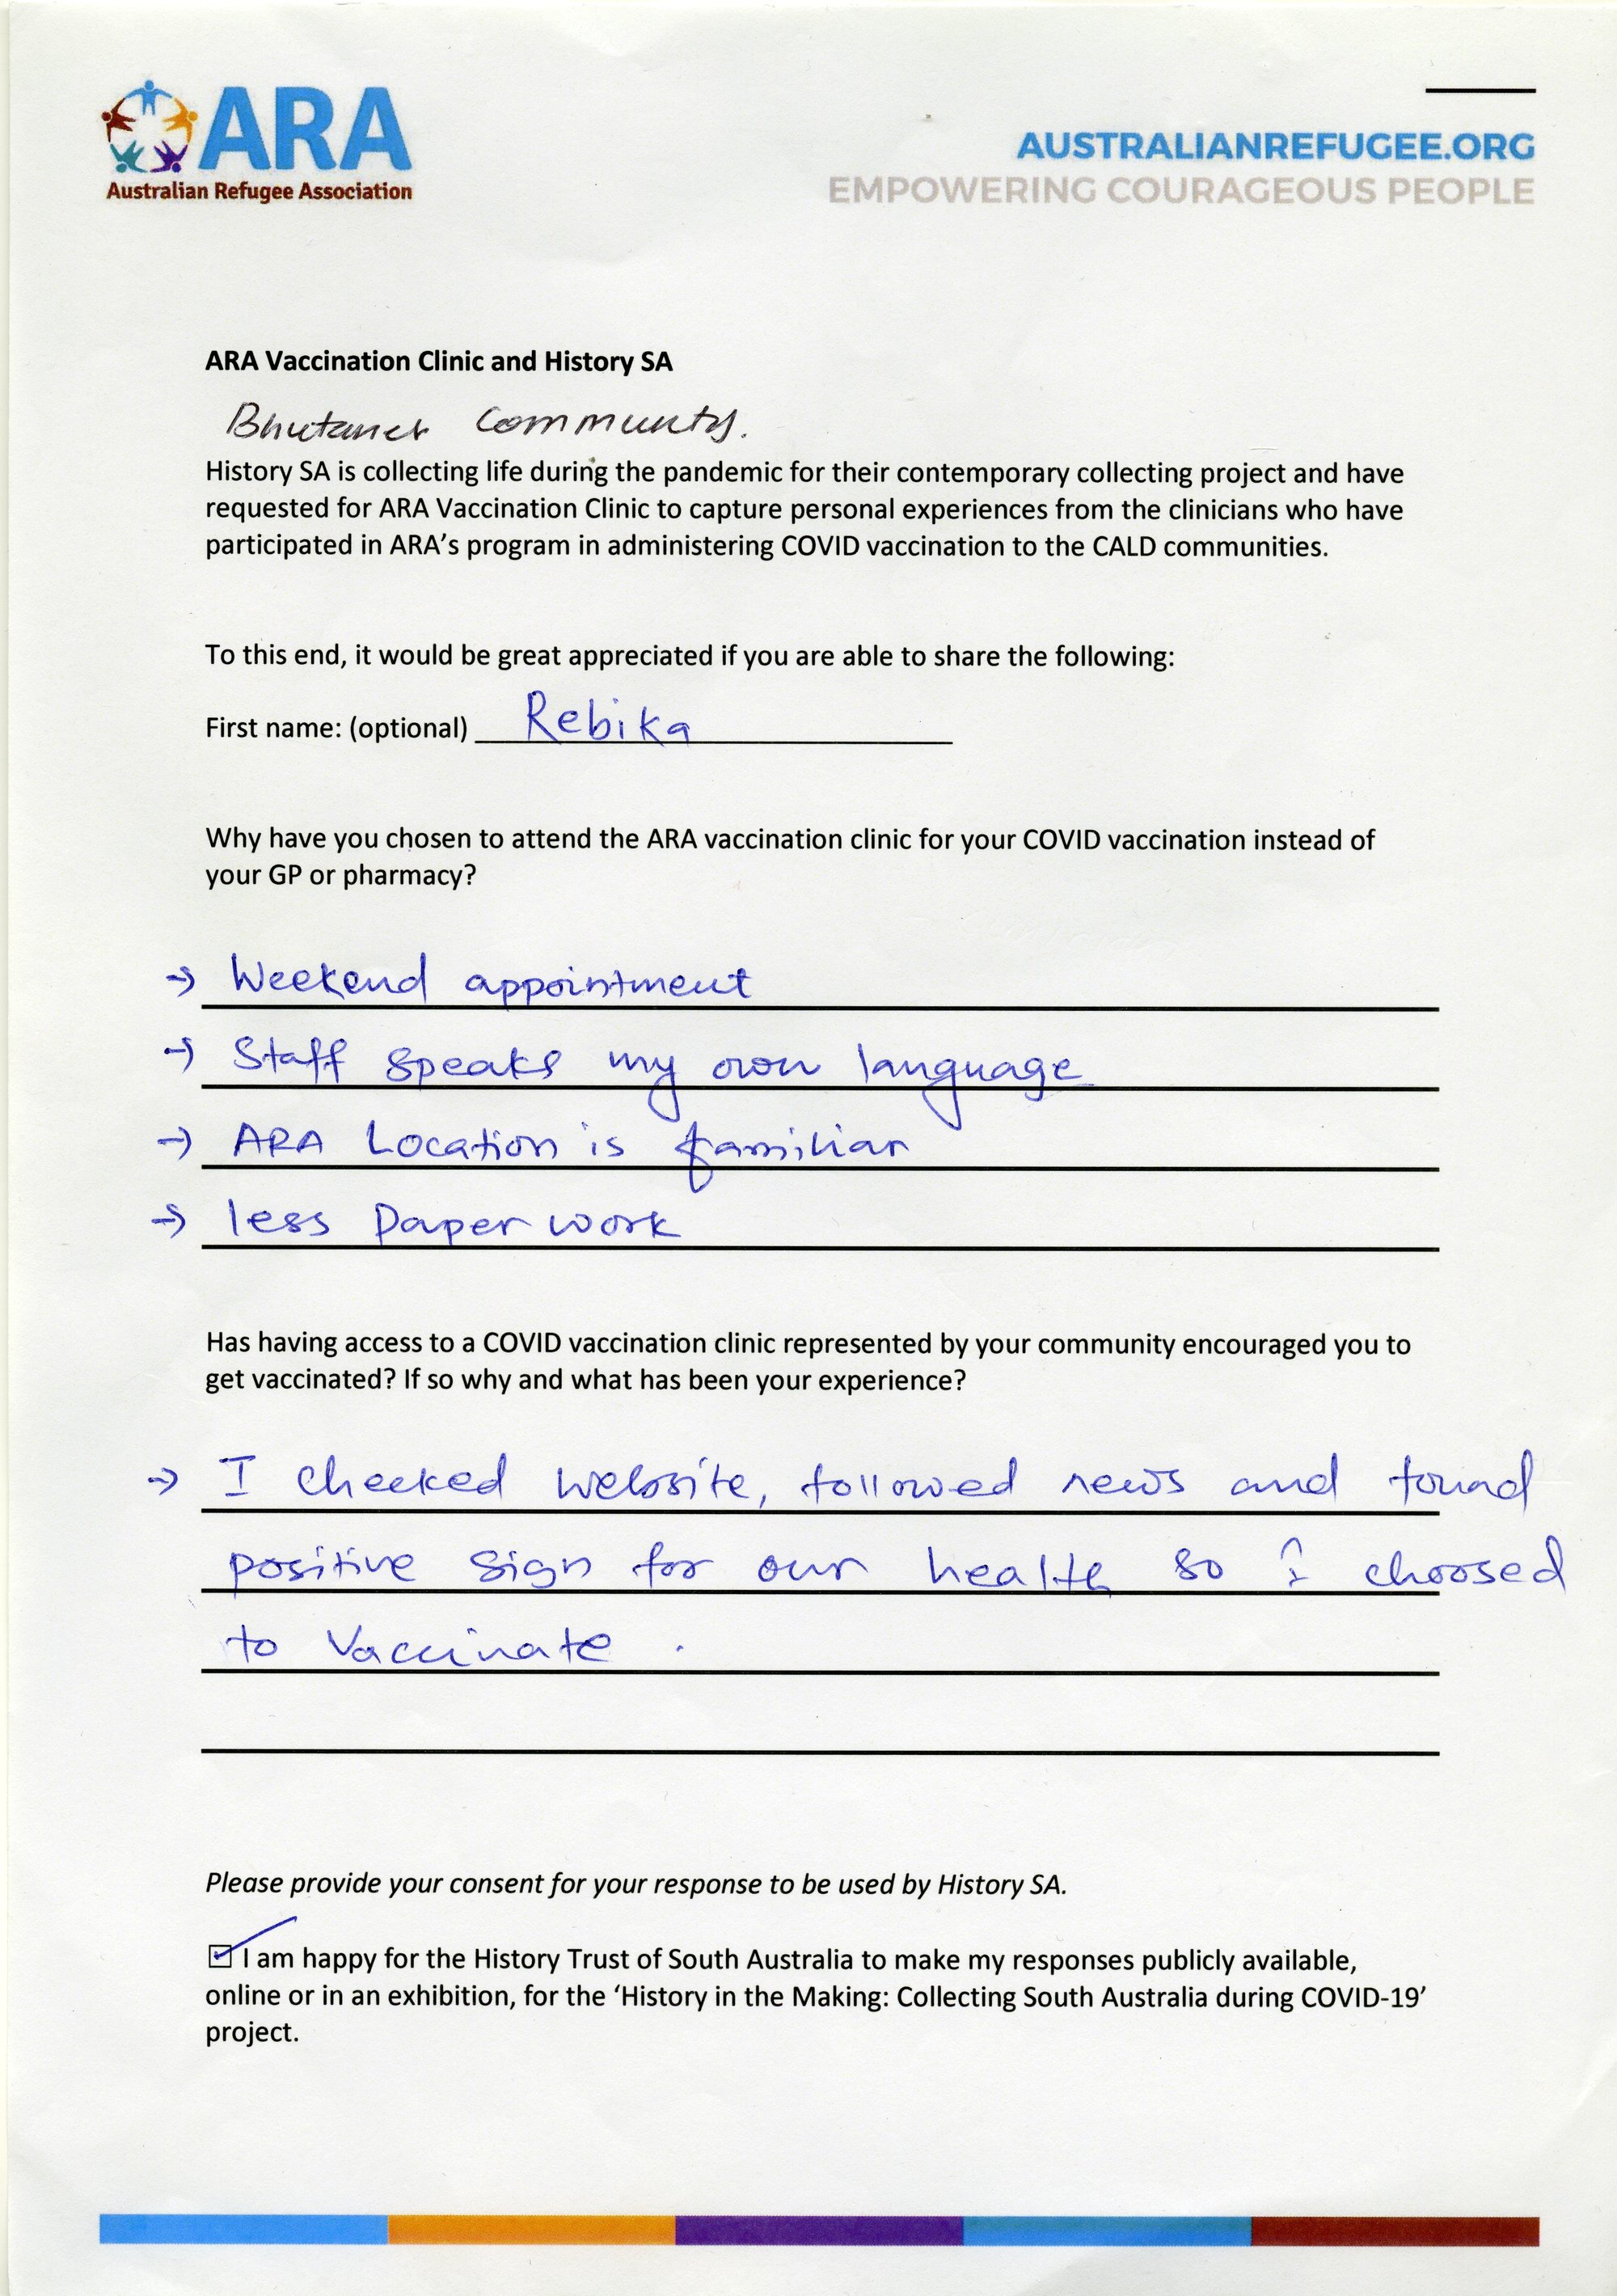 ARA
Australian Refugee Association
AUSTRALIANREFUGEE.ORG
EMPOWERING COURAGEOUS PEOPLE
ARA Vaccination Clinic and History SA
Bhutanes Community.
History SA is collecting life during the pandemic for their contemporary collecting project and have
requested for ARA Vaccination Clinic to capture personal experiences from the clinicians who have
participated in ARA's program in administering COVID vaccination to the CALD communities.
To this end, it would be great appreciated if you are able to share the following:
First name: (optional) Rebika
Why have you chosen to attend the ARA vaccination clinic for your COVID vaccination instead of
your GP or pharmacy?
→ Weekend appointment
→ Staff speaks my own language
→ ARA Location is familiar
→ less paper work
Has having access to a COVID vaccination clinic represented by your community encouraged you to
get vaccinated? If so why and what has been your experience?
→ I checked website, followed news and found
positive sign for our health so I choosed
to vaccinate .
Please provide your consent for your response to be used by History SA.
☑ I am happy for the History Trust of South Australia to make my responses publicly available,
online or in an exhibition, for the 'History in the Making: Collecting South Australia during COVID-19'
project.